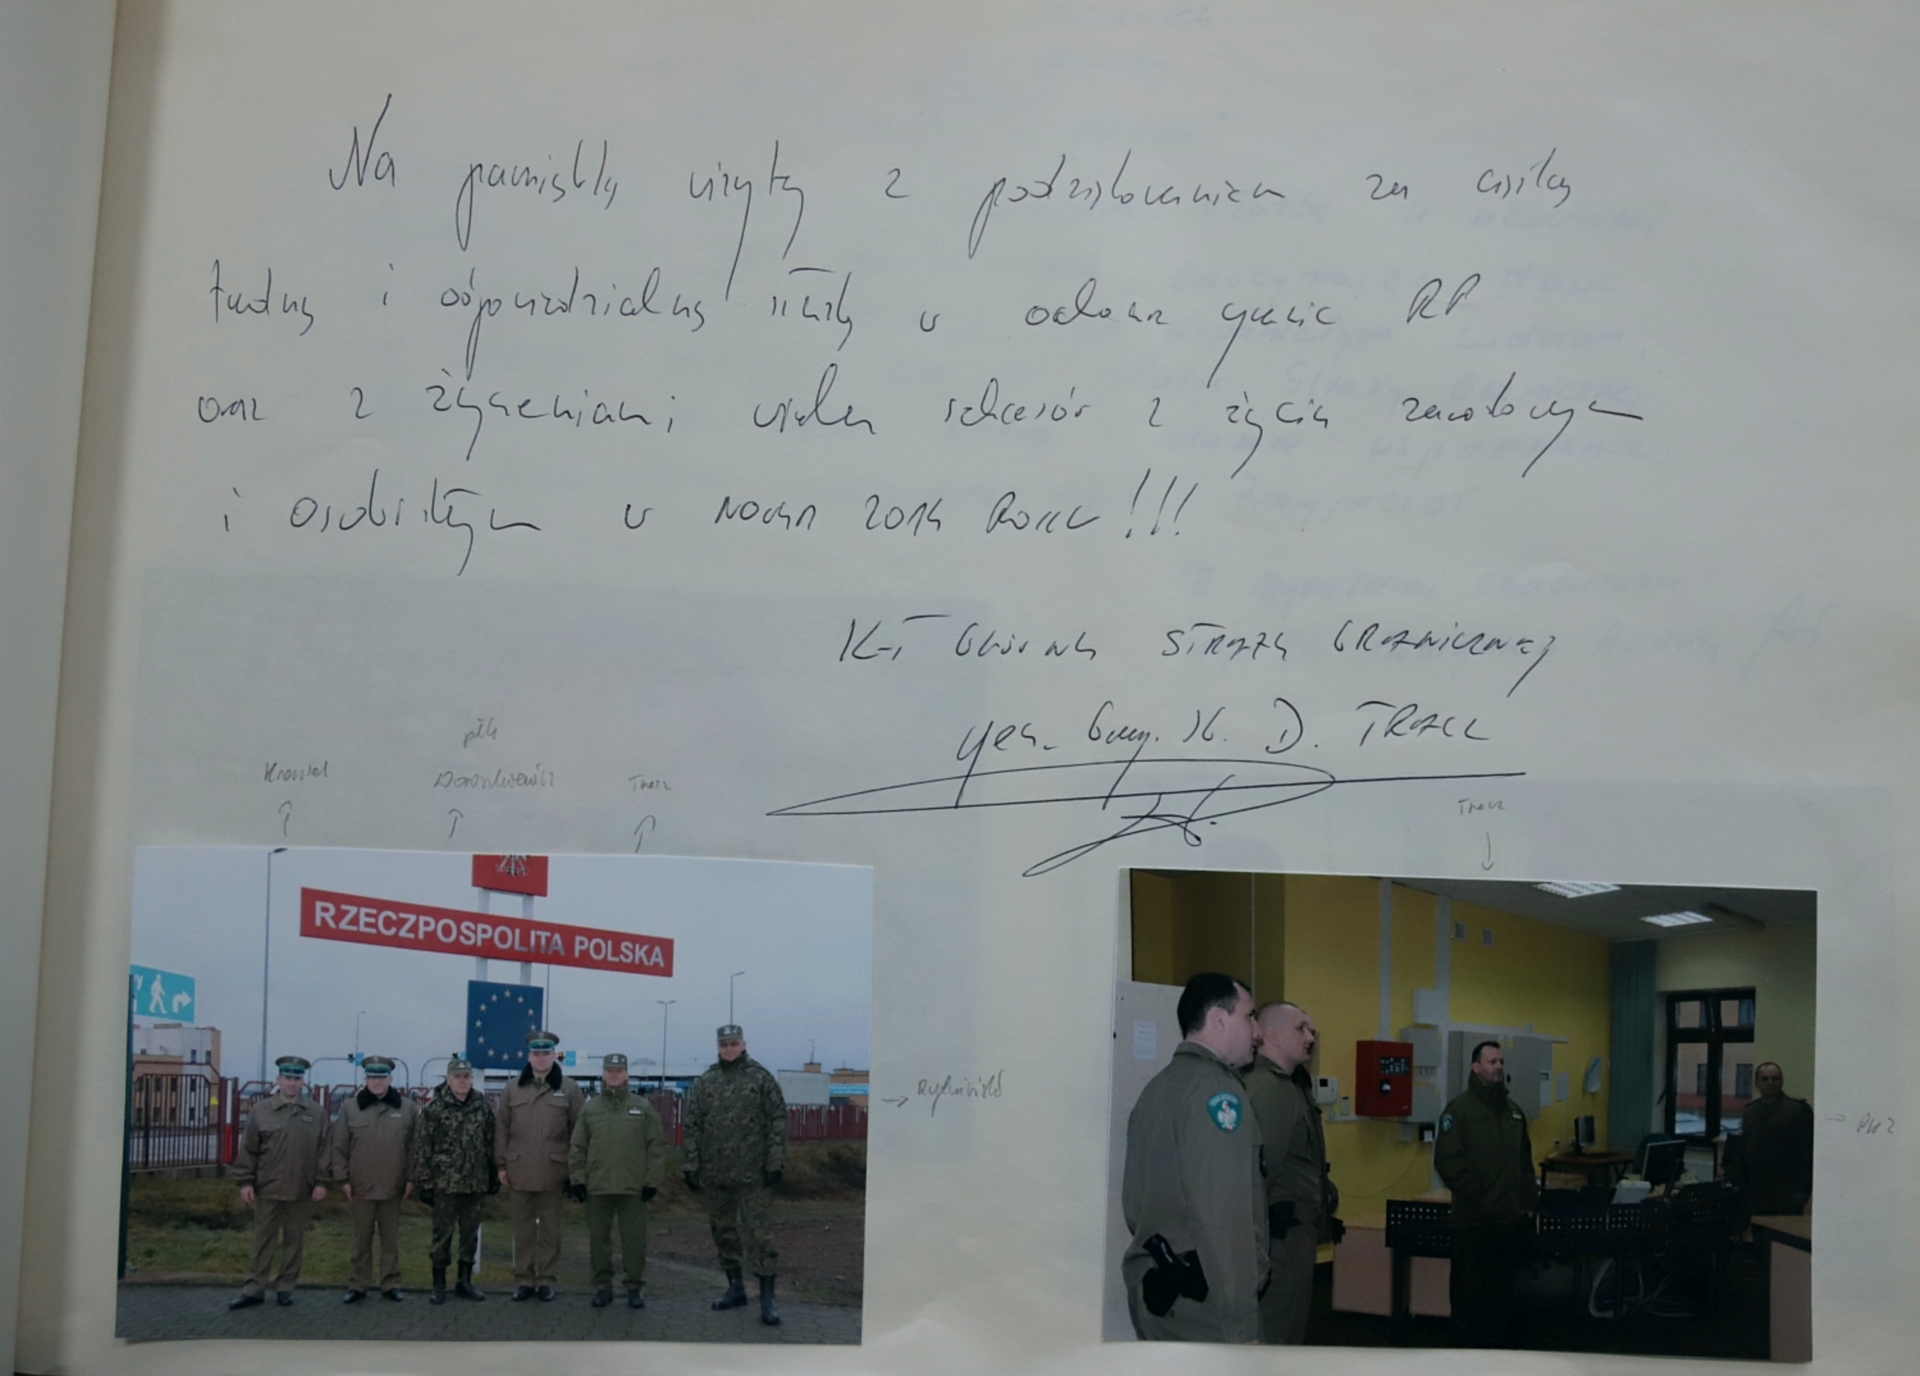 Na pamiątkę wizyty z podziękowaniem za ciężką
trudną i odpowiedzialną służbę w ochronie granic RP
oraz z życzeniami wielu sukcesów z życiu zawodowym
i osobistym w NOWYM 2014 ROKU!!!
K-T GŁÓWNY STRAŻY GRANICZNEJ
gen. bryg. SG. D. TRACZ
płk
Tracz
Tracz
RZECZPOSPOLITA POLSKA